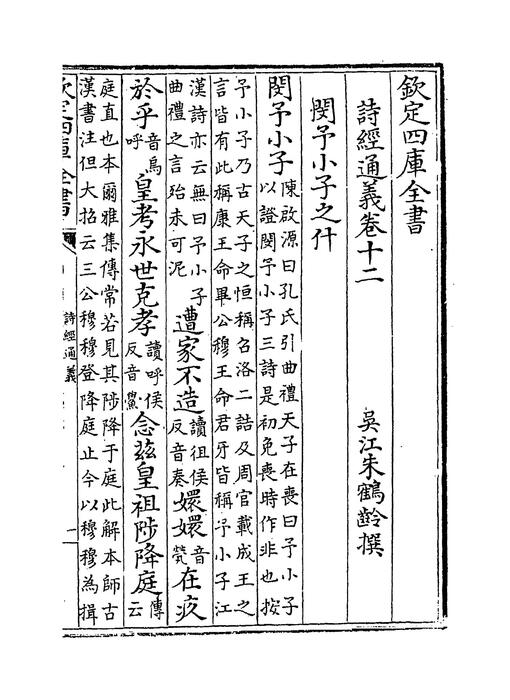 欽定四庫全書
詩經通義卷十二
吳江朱鶴齡撰
閔予小子之什
閔予小子陳啟源曰孔氏引曲禮天子在喪曰予小子以證閔予小子三詩是初免喪時作非也按
予小子乃古天子之恒稱召洛二誥及周官載成王之言皆有此稱康王命畢公穆王命君牙皆稱予小子江
漢詩亦云無曰予小子曲禮之言殆未可泥遭家不造讀徂侯反音奏嬛嬛音煢在疚
於乎音烏呼皇考永世克孝讀呼侯反音鱟念茲皇祖陟降庭傳云
庭直也本爾雅集傳常若見其陟降于庭此解本師古漢書注但大招云三公穆穆登降庭止今以穆穆為揖
欽定四庫全書
詩經通義
一